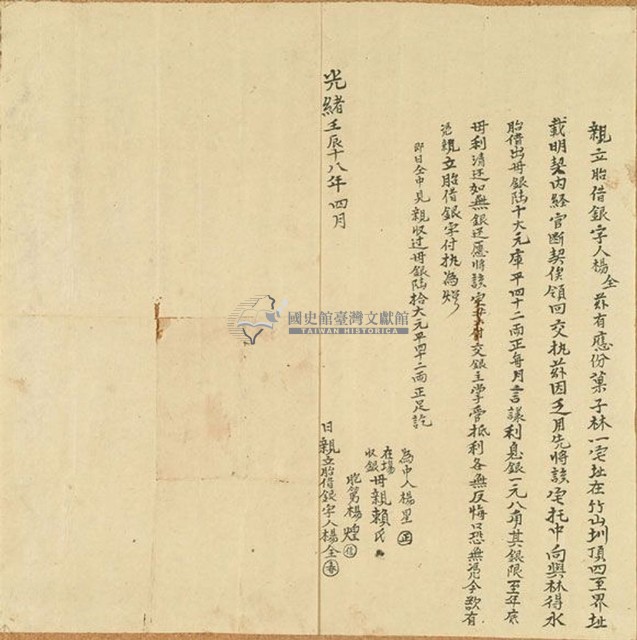 親立胎借銀字人楊全茲有應份菓子林一宅址在竹山圳頂四至界址
載明契內經官斷契俟領回交执茲因乏用先將該宅托中向與林得水
胎借出母銀陸十大元庫平四十二兩正每月言議利息銀一元八角其銀限至年底
母利清还如無銀还愿將該宅 付交銀主掌管抵利各無反悔口恐無凴今欲有
凴親立胎借銀字付执為炤
即日仝中見親收过母銀陸拾大元平四十二兩正足訖
為中人楊星
在塲
收銀 母親賴氏
代筆楊煌
光緒壬辰十八年四月
日親立胎借銀字人楊全
國史館臺灣文獻館
TAIWAN HISTORICA